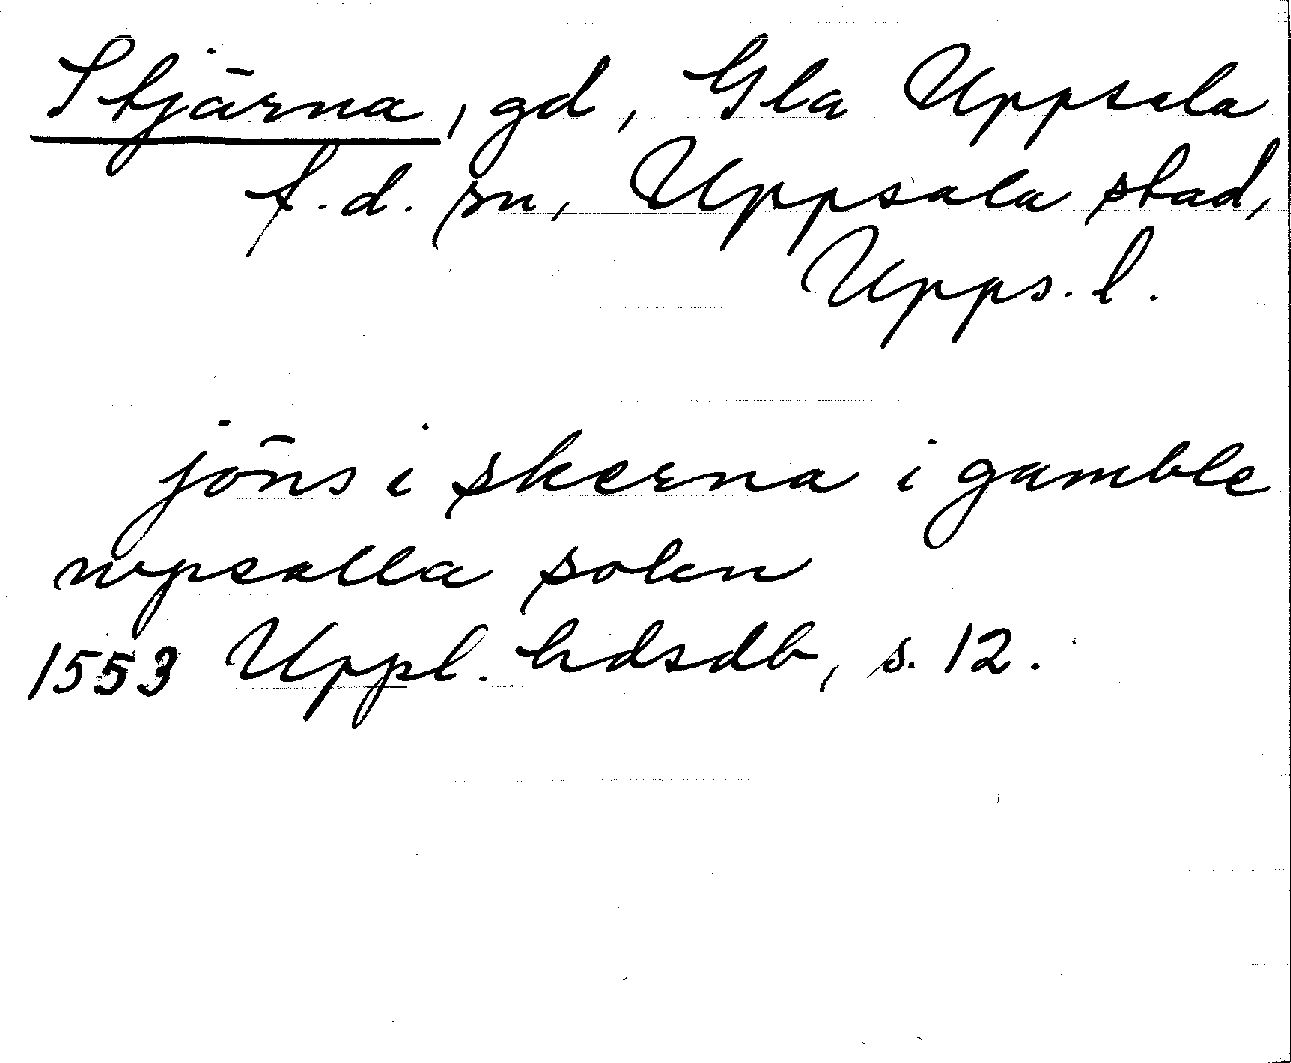 Stjärna, gd, Gla Uppsala
f.d. sn, Uppsala stad,
Upps. l.
jöns i skerna i gamble
wpsalla sokn
1553 Uppl. hdsdb, s. 12.